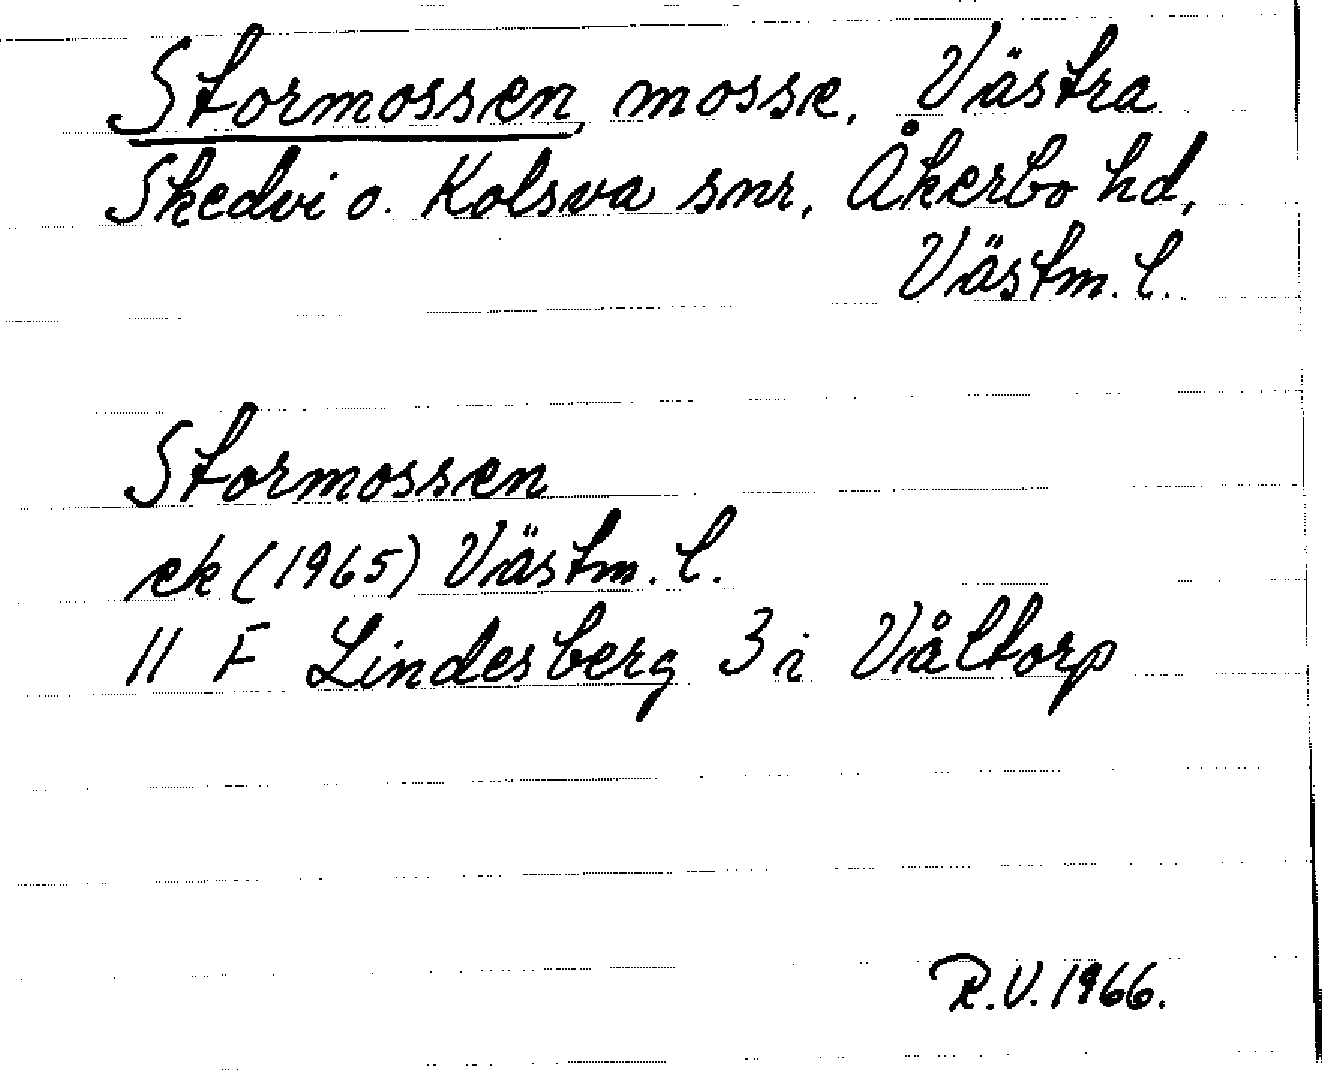 Stormossen, mosse, Västra
Skedvi o. Kolsva snr, Åkerbo hd,
Västm. l.
Stormossen
ek (1965) Västm. l.
11 F Lindesberg 3 i Våltorp
R.V. 1966.